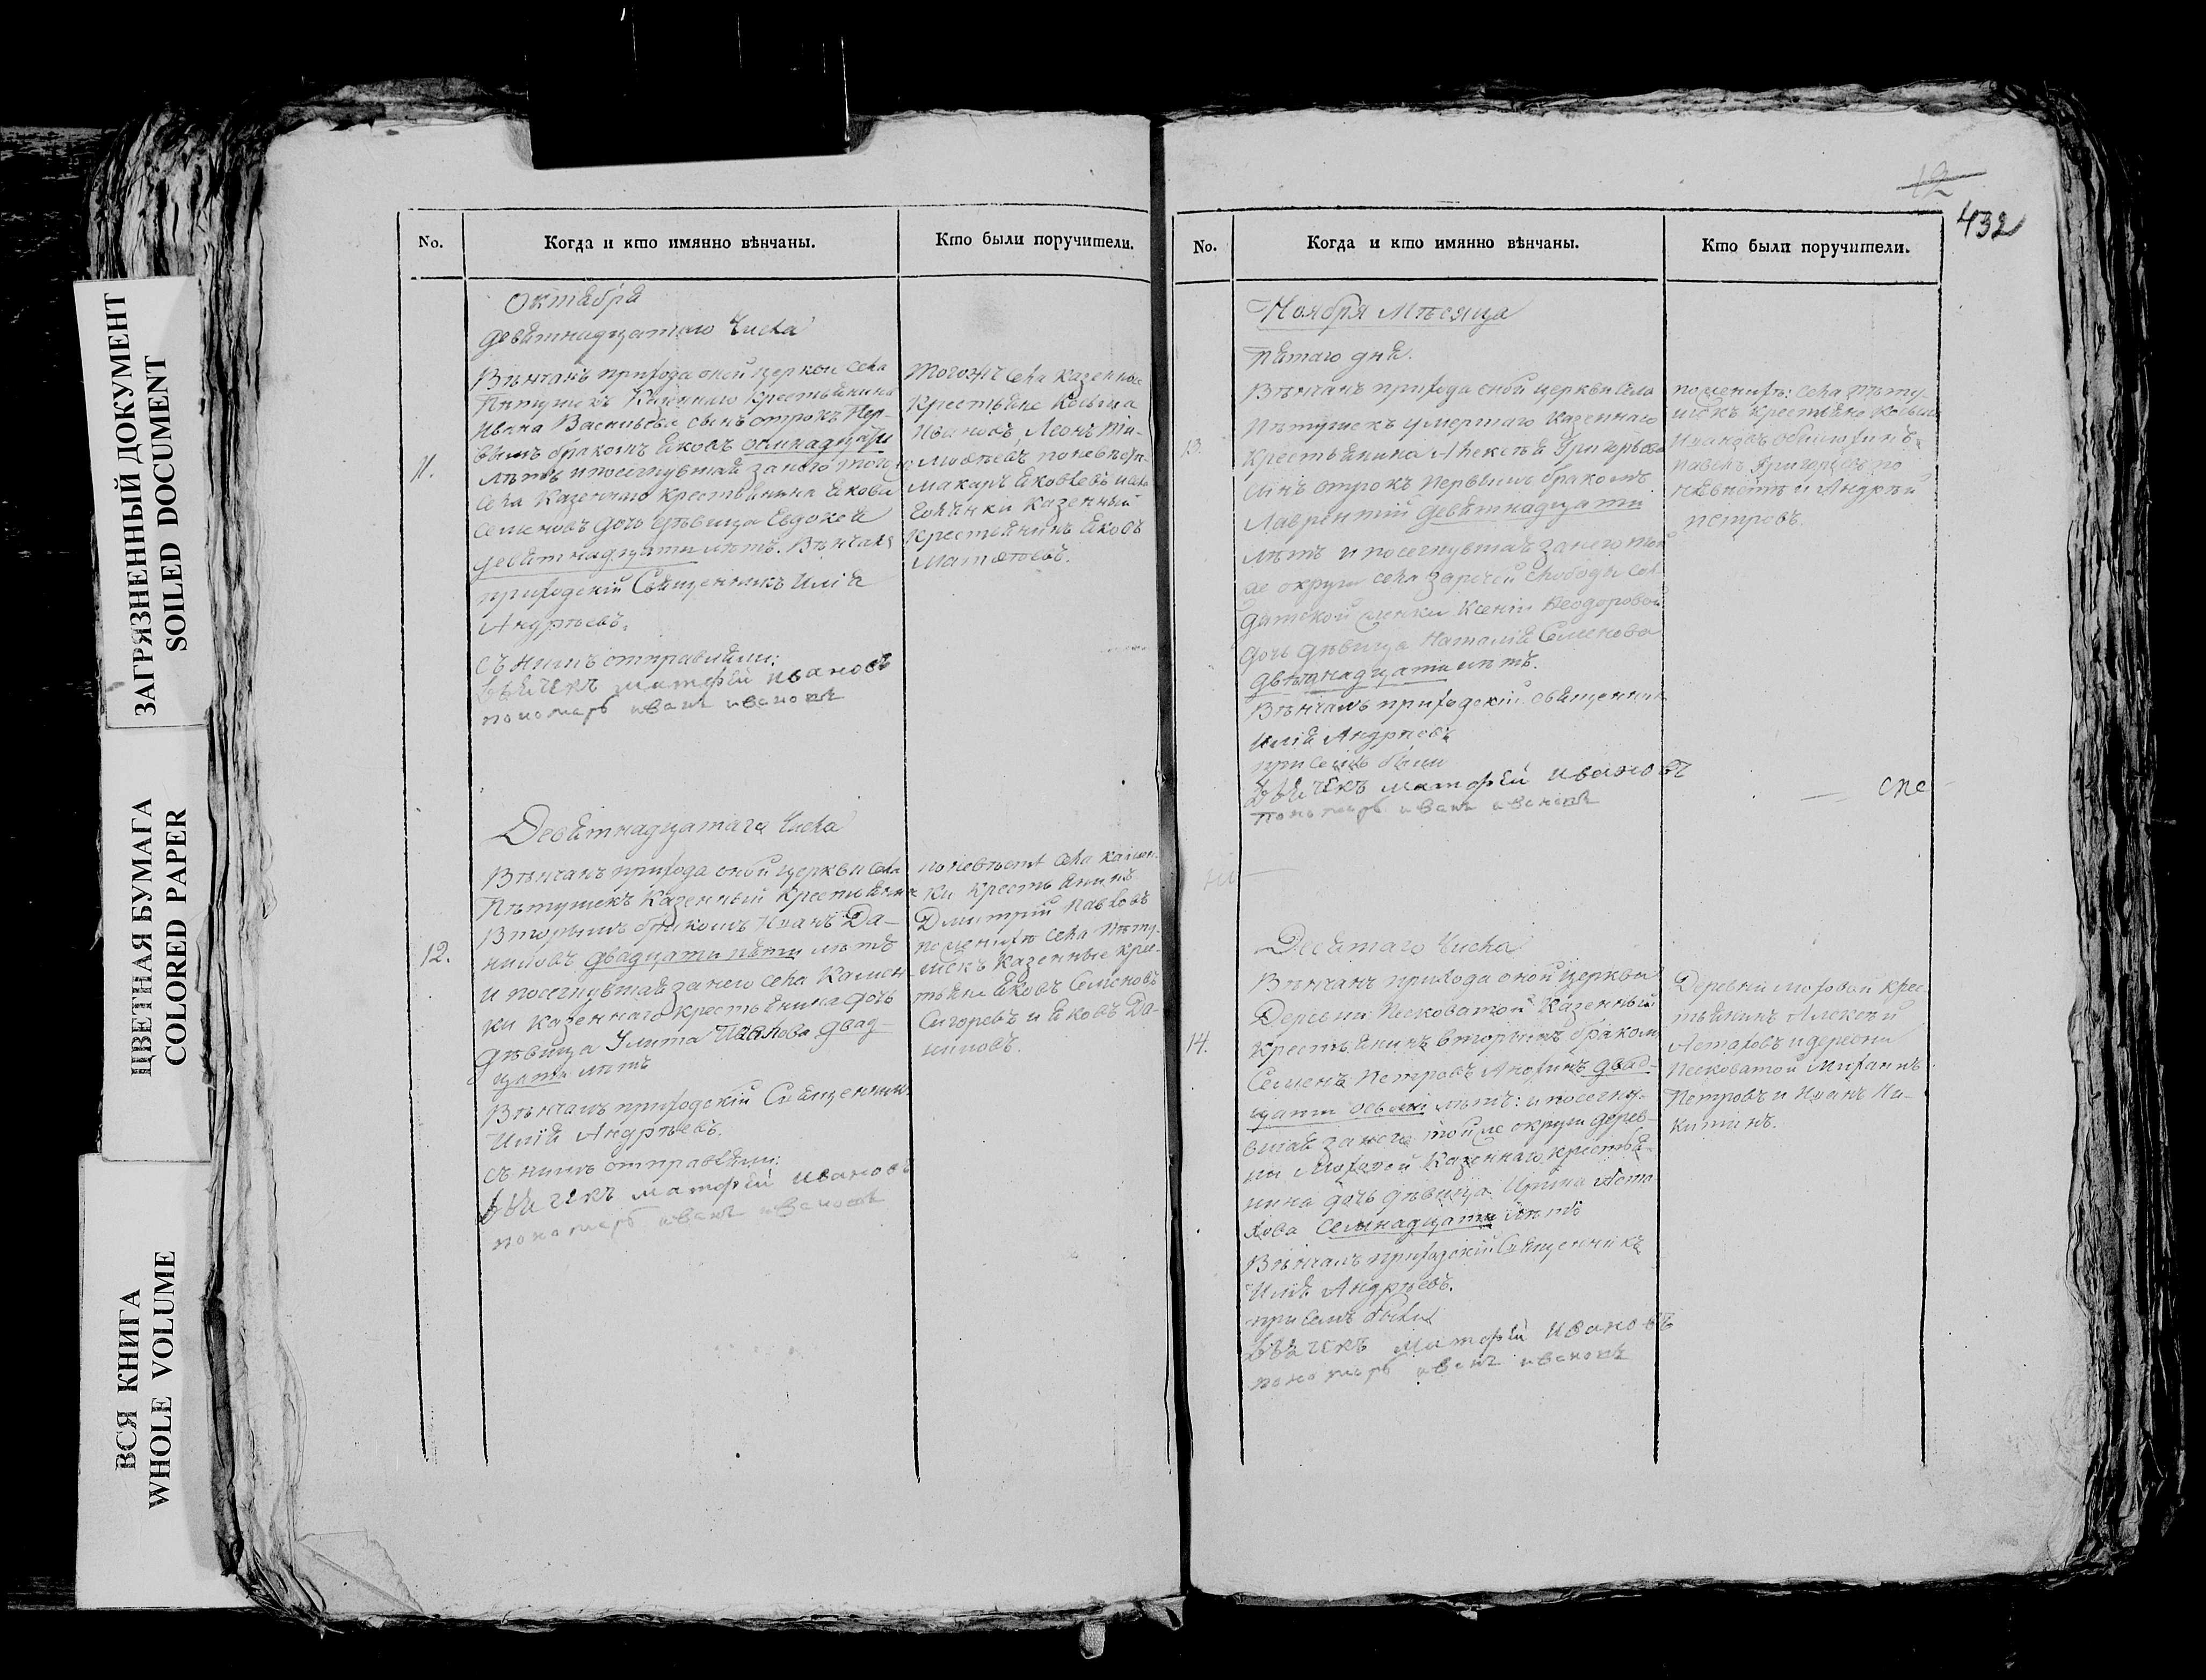 ЗАГРЯЗНЕННЫЙ ДОКУМЕНТ
SOILED DOCUMENT
ЦВЕТНАЯ БУМАГА
COLORED PAPER
ВСЯ КНИГА
WHOLE VOLUME
No.
Когда и кто имянно вѣнчаны.
Кто были поручители.
Октября
девятнадцатаго числа
11.
Вѣнчанъ прихода оной церкви села
Пѣтушекъ Казеннаго Крестьянина
Ивана Васильева сынъ отрокъ Пер-
вымъ бракомъ Яковъ
лѣтъ и посегнувшая за него того
села Казеннаго крестьянина Якова
Семенова дочь дѣвица Евдокея
девятнадцати лѣтъ. Вѣнчалъ
приходскій Священникъ Илія
Андрѣевъ.
съ нимъ отправляли:
дьячекъ матфей ивановъ
пономарь иванъ ивановъ
тогожъ села казенные
Крестьяне
Ивановъ, Леонъ Ти-
мофѣевъ по невѣстѣ
макаръ Яковлевъ и села
казенный
крестьянинъ Яковъ
Матфѣевъ.
Девятнадцатаго числа
12.
Вѣнчанъ прихода оной церкви села
Пѣтушекъ Казенный Крестьянинъ
Вторымъ бракомъ Иванъ Да-
ниловъ двадцати пяти лѣтъ
и посегнувшая за него села Камен-
ки казеннаго крестьянина дочь
дѣвица Улита Иванова двад-
цати лѣтъ
Вѣнчалъ приходскій Священникъ
Илія Андрѣевъ.
съ нимъ отправляли:
дьячекъ матфей ивановъ
пономарь иванъ ивановъ
по невѣстѣ села Камен-
ки крестьянинъ
Дмитрій Павловъ
по женихѣ села Пѣту-
шекъ Казенные крес-
тьяне Яковъ Семеновъ
и Яковъ Да-
ниловъ.
12
432
No.
Когда и кто имянно вѣнчаны.
Кто были поручители.
Ноября Мѣсяца
Пятаго дня.
13.
Вѣнчанъ прихода оной церкви села
Пѣтушекъ умершаго казеннаго
крестьянина Алексѣя Григорьева
сынъ отрокъ первымъ бракомъ
Лаврентій девятнадцати
лѣтъ и посегнувшая за него той
же округи села слободы сол-
датской женки Ксеніи Феодоровой
дочь дѣвица Наталія Семенова
девятнадцати лѣтъ.
Вѣнчалъ приходскій священникъ
Илія Андрѣевъ
при семъ были
дьячекъ матфей ивановъ
пономарь иванъ ивановъ
по женихѣ: села Пѣту-
шекъ крестьяне
Ивановъ
Павелъ Григорьевъ по
невѣстѣ и Андрѣй
петровъ.
Десятаго числа
14.
Вѣнчанъ прихода оной церкви
Деревни Песковатой Казенный
крестьянинъ вторымъ бракомъ
Семенъ Петровъ двад-
цати осьми лѣтъ: и посегну-
вшая за него той же округи дерев-
ни Моховой Казеннаго крестья-
нина дочь дѣвица Ирина Аста-
хова семнадцати лѣтъ
Вѣнчалъ приходскій Священникъ
Илія Андрѣевъ.
при семъ были
дьячекъ матфей ивановъ
пономарь иванъ ивановъ
Деревни моховой крес-
тьянинъ Алексѣй
Астаховъ и деревни
Песковатой
Петровъ и Иванъ Ни-
китинъ.